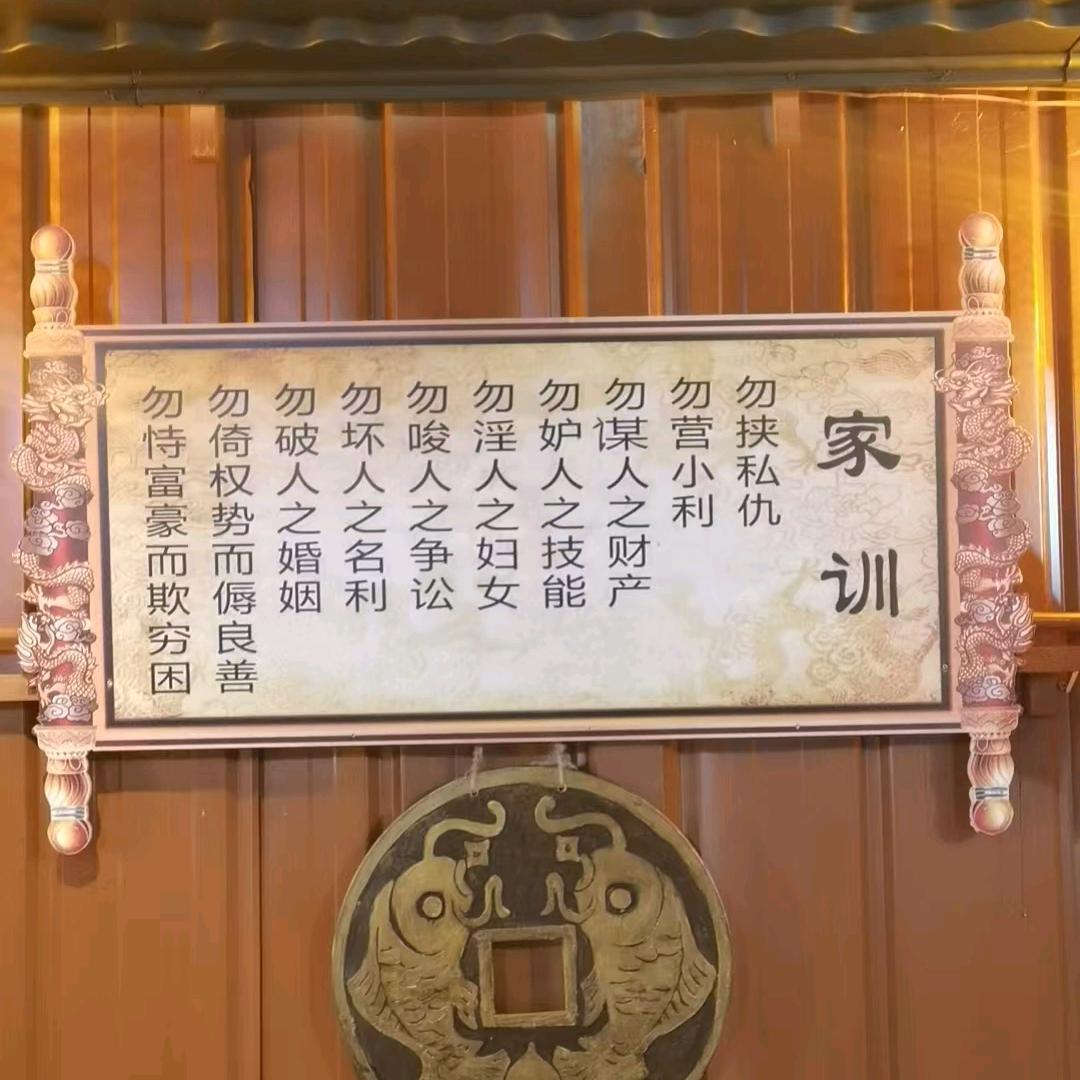 家训
勿挟私仇
勿营小利
勿谋人之财产
勿妒人之技能
勿淫人之妇女
勿唆人之争讼
勿坏人之名利
勿破人之婚姻
勿倚权势而辱良善
勿恃富豪而欺穷困